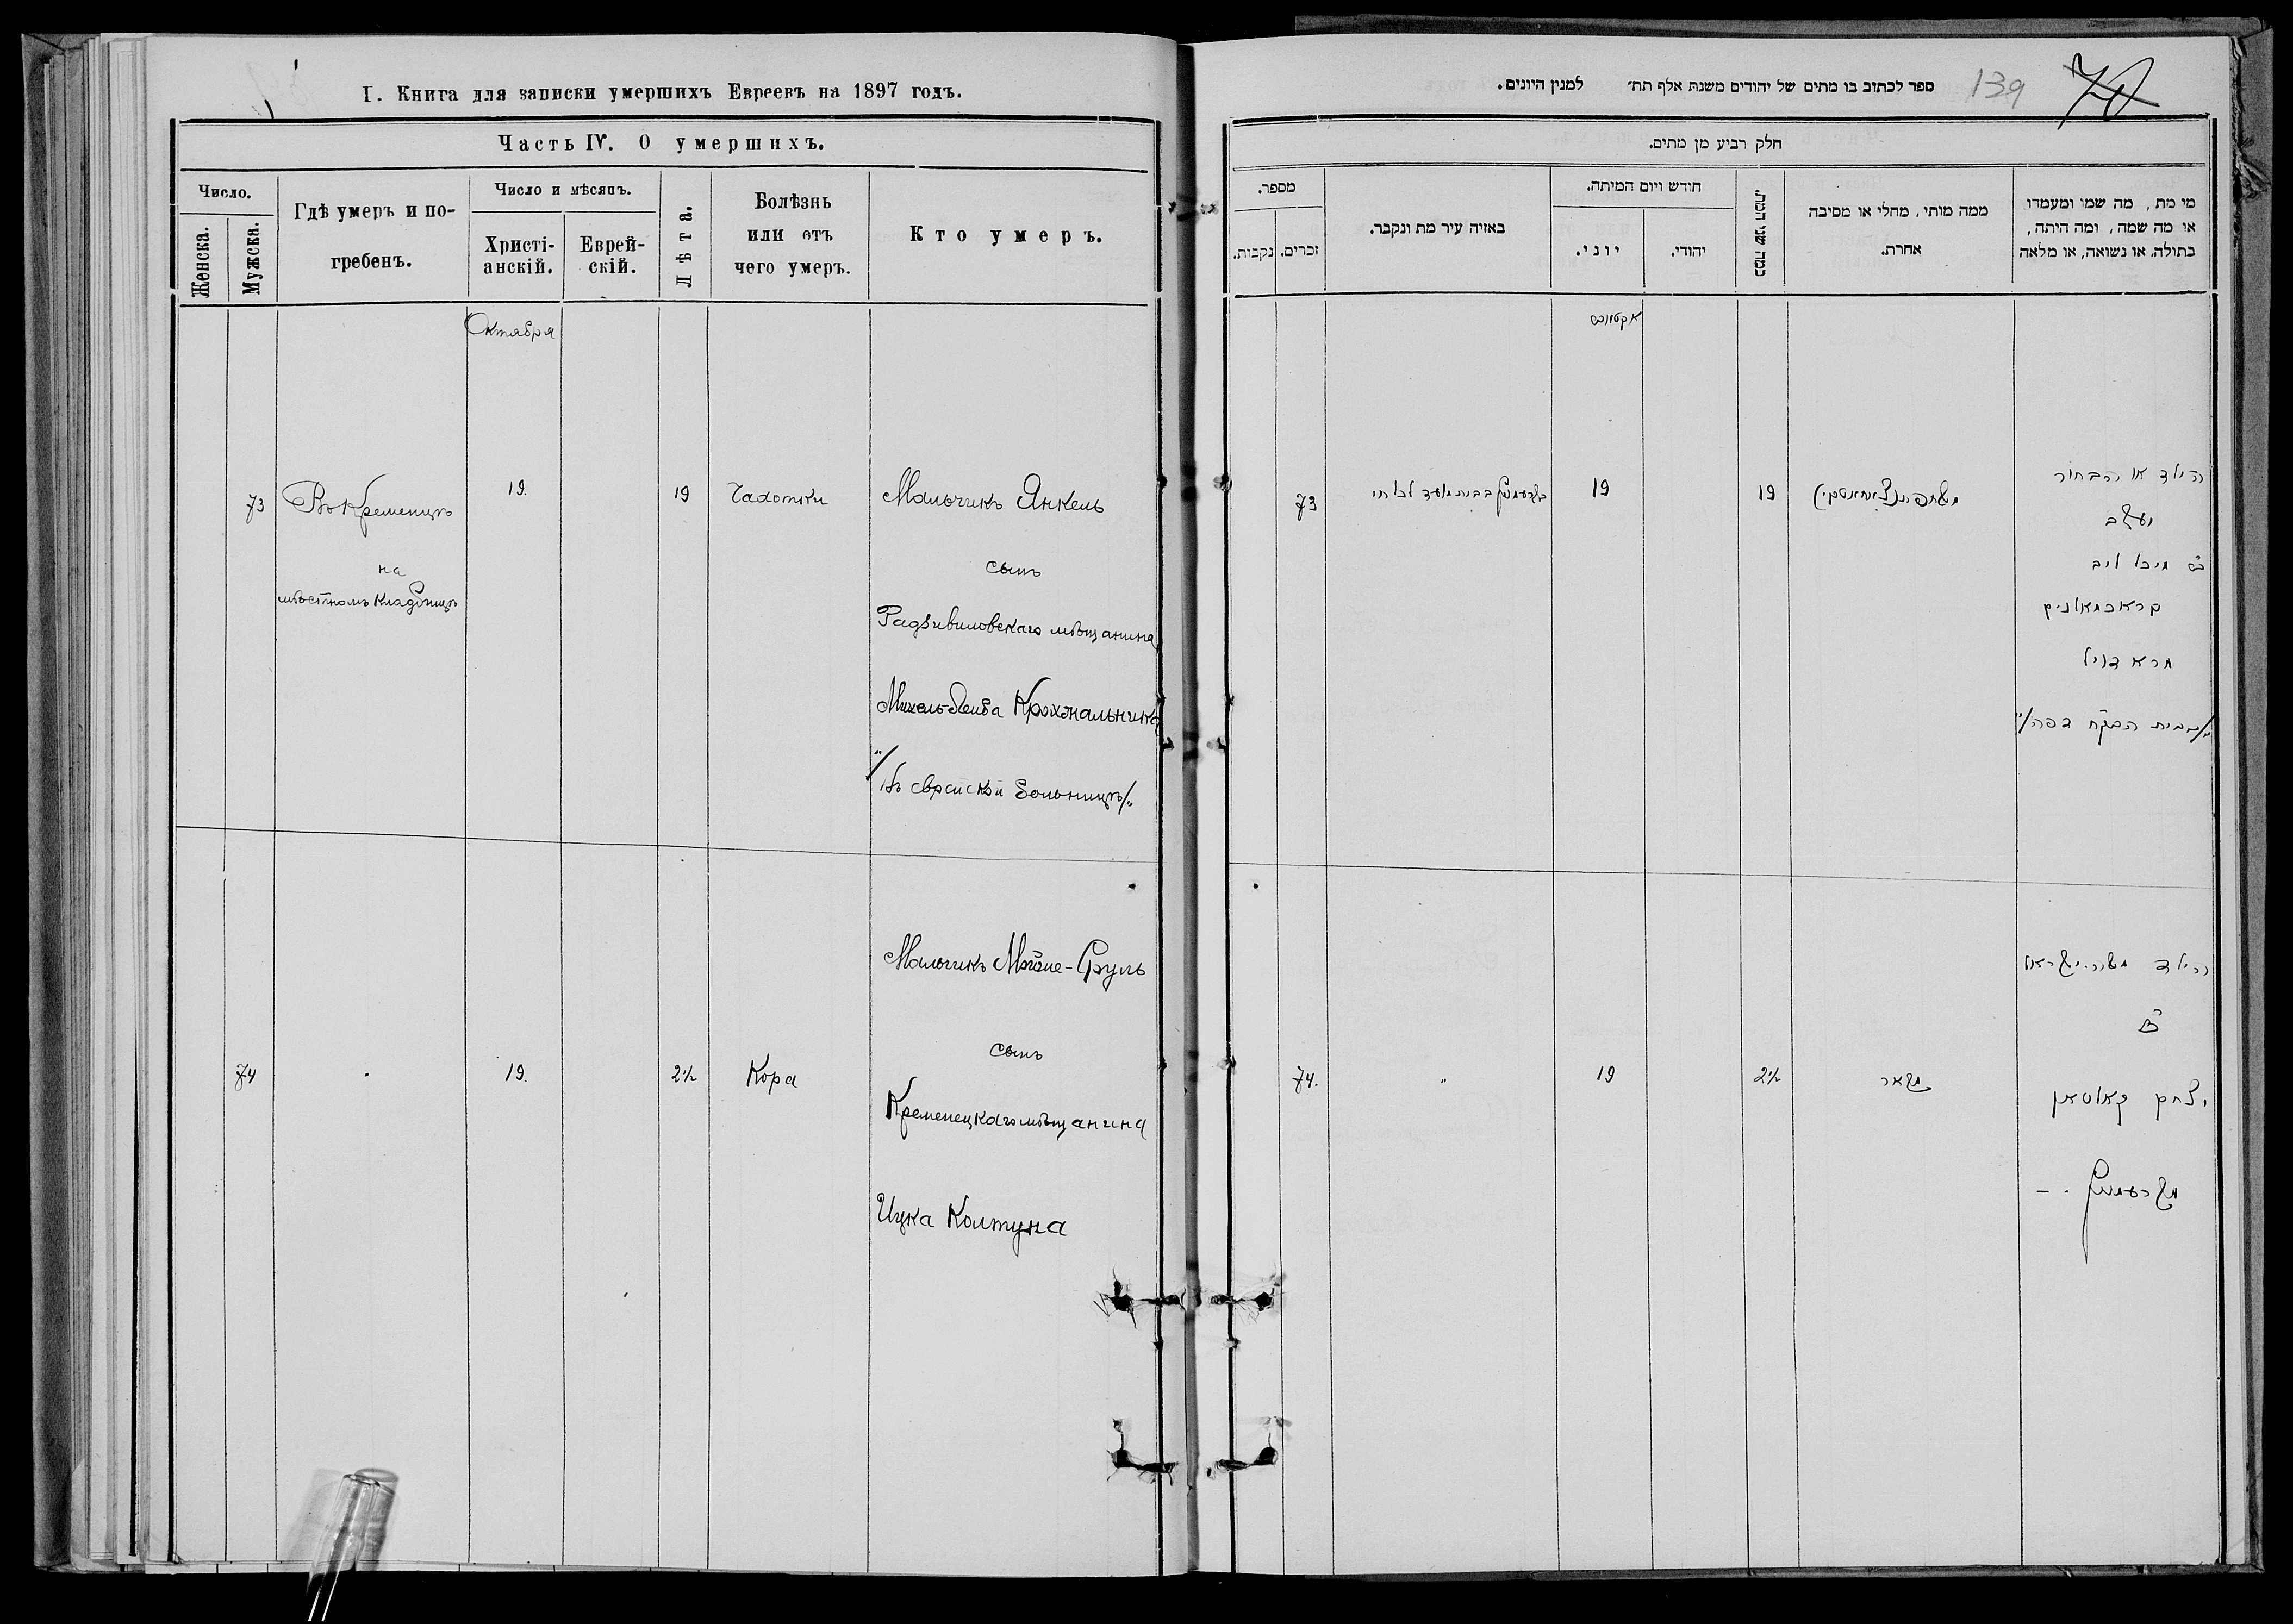 I. Книга для записки умершихъ Евреевъ на 1897 годъ.
Часть IV. О умершихъ.
Число.
Женска.
Мужска.
Гдѣ умеръ и по-
гребенъ.
Число и мѣсяцъ.
Христі-
анскій.
Еврей-
скій.
Лѣта.
Болѣзнь
или отъ
чего умеръ.
Кто умеръ.
Октября
73
Въ Кременцѣ
на
мѣстномъ кладбищѣ
19.
19
Чахотки
Мальчикъ Янкель
сынъ
Радзивиловскаго мѣщанина
Михель-Лейба Крохмальника
"/Въ еврейской больницѣ/"
74
19.
2½
Кора
Мальчикъ Мойше-Сруль
сынъ
Кременецкаго мѣщанина
Ицка Колтуна
ספר לכתוב בו מתים של יהודים משנת אלף תת׳ למנין היונים.
139
70
חלק רביע מן מתים.
מספר.
נקבות.
זכרים.
באיזה עיר מת ונקבר.
חודש ויום המיתה.
יוני.
יהודי.
כמה שני המת.
ממה מותי, מחלי או מסיבה
אחרת.
מי מת, מה שמו ומעמדו
או מה שמה, ומה היתה,
בתולה, או נשואה, או מלאה
73
בקרעמניץ בבית מועד לכל חי
19
19
הילד או הבחור
יעקב
מיכל ליב
קראכמאלניק
74.
"
19
2½
הילד משה ישראל
יצחק קאלטאן
מקרעמניץ